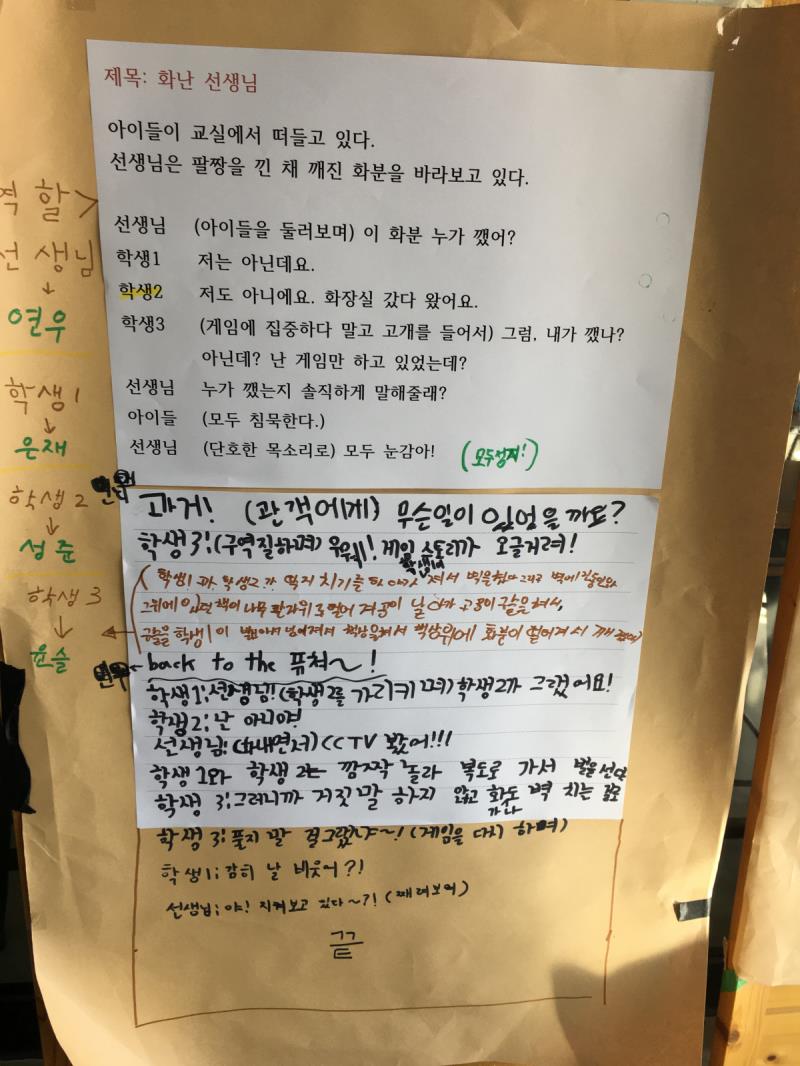 제목: 화난 선생님
아이들이 교실에서 떠들고 있다.
선생님은 팔짱을 낀 채 깨진 화분을 바라보고 있다.
선생님 (아이들을 둘러보며) 이 화분 누가 깼어?
학생1 저는 아닌데요.
학생2 저도 아니에요. 화장실 갔다 왔어요.
학생3 (게임에 집중하다 말고 고개를 들어서) 그럼, 내가 깼나?
아닌데? 난 게임만 하고 있었는데?
선생님 누가 깼는지 솔직하게 말해줄래?
아이들 (모두 침묵한다.)
선생님 (단호한 목소리로) 모두 눈감아! (모두정지!)
역할>
선생님
↓
연우
학생1
↓
은재
학생2
↓
성준
학생3
↓
윤슬
과거! (관객에게) 무슨일이 있었을까요?
학생3:(구역질하며) 우웩! 게임 스토리가 오글거려!
(학생1과 학생2가 딱지 치기를 하다가 져서 벽을
그위에 있던 책이 나무 판자위로 떨어 저공이 날아가
학생1이 넘어져서 책상위에 화분이 떨어져서 깨
back to the 퓨쳐~!
학생1:선생님!(학생2를 가리키며) 학생2가 그랬어요!
학생2:난 아니야
선생님:(화내면서) CCTV 봤어!!!
학생1와 학생2는 깜짝 놀라 복도로 가서 벌을선다
학생 3:그러니까 거짓말 하지 않고 벽 치는
학생3: 말 걸그랬냐~!(게임을 다시 하며)
학생1:감히 날 비웃어?!
선생님:야! 지켜보고 있다~?!(째려보며)
끝